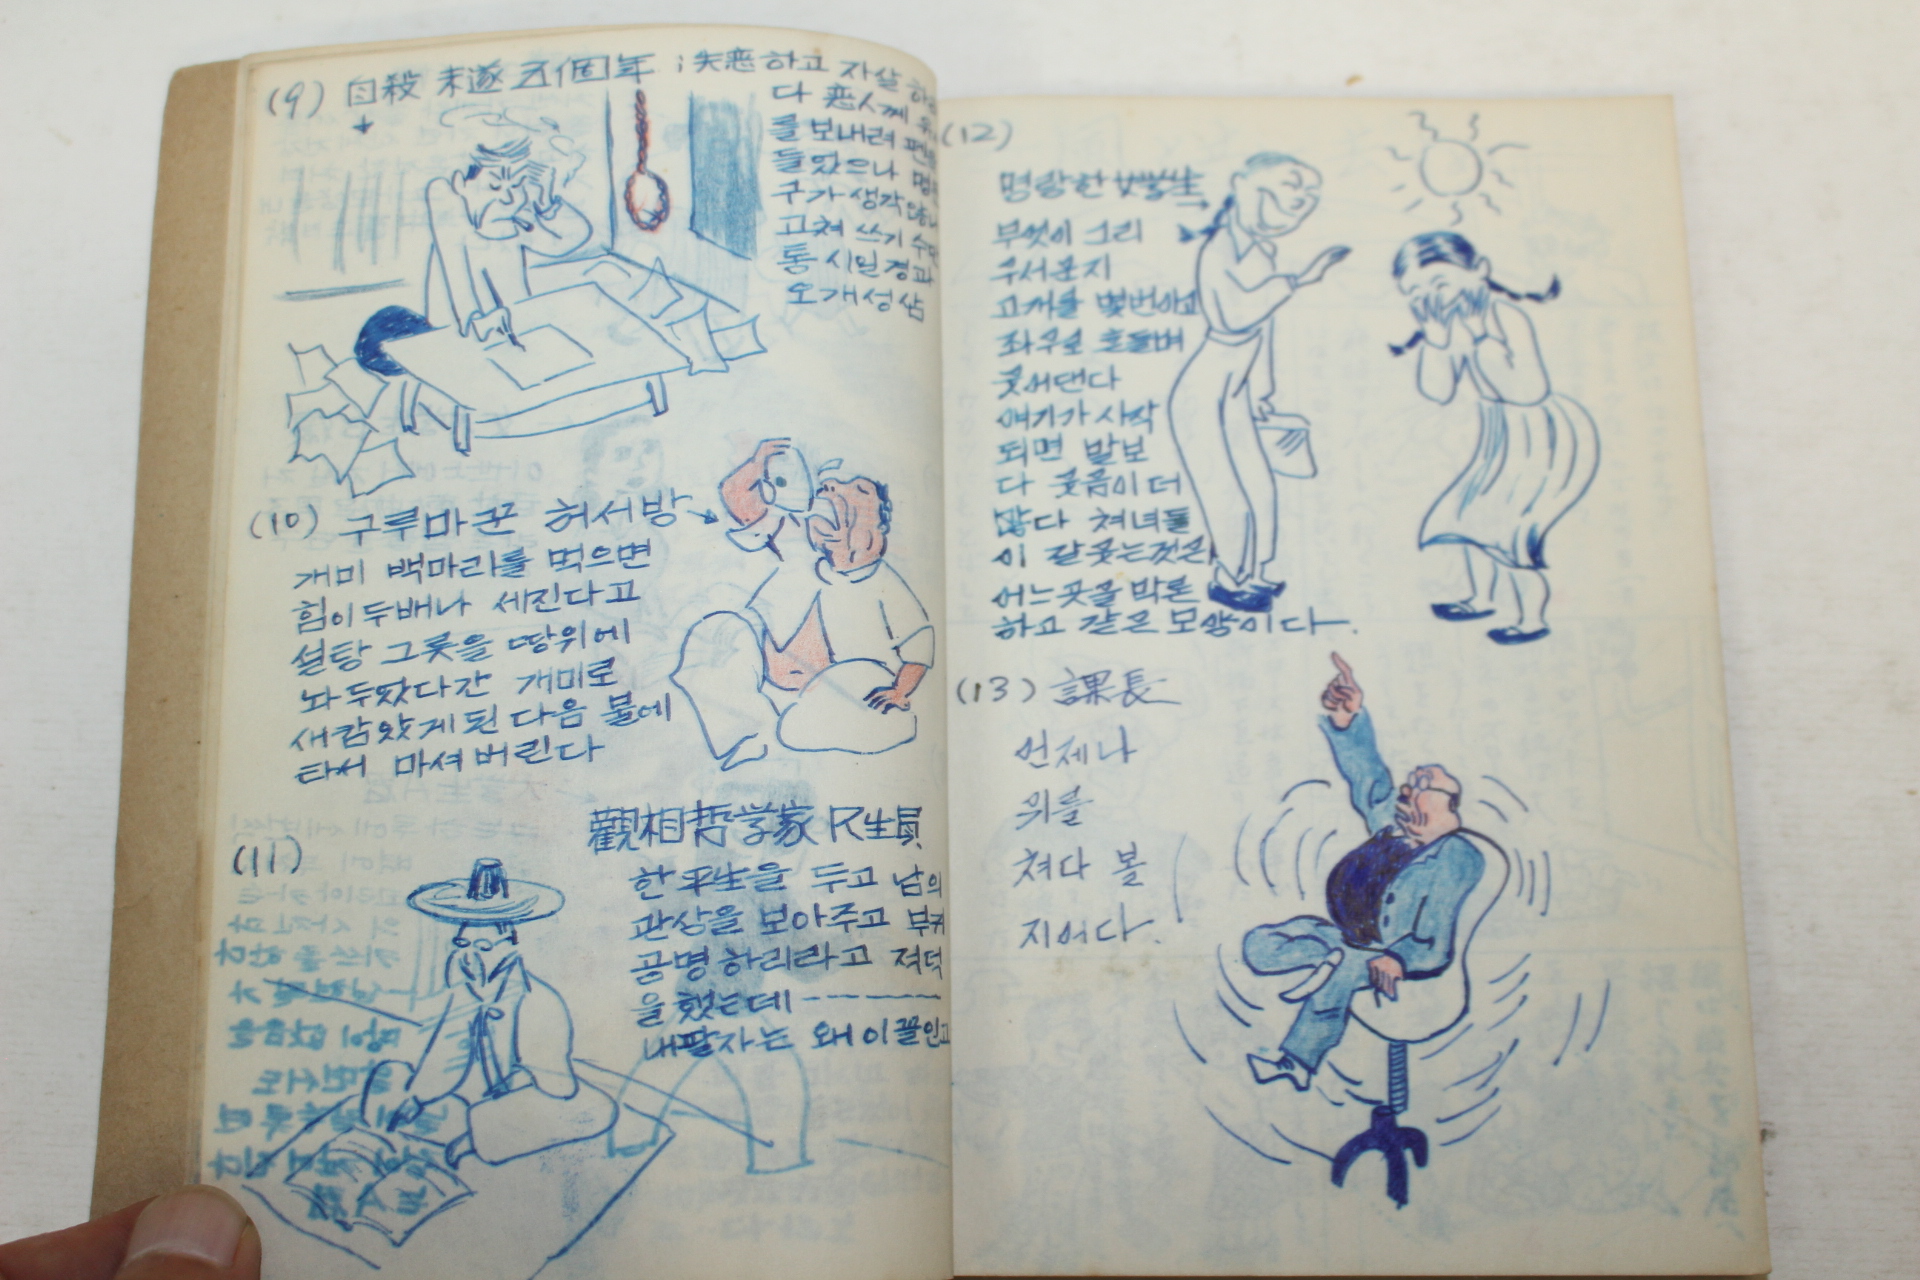 (9) 自殺 未遂 五個年 ; 失恋하고 자살 하
다 恋人께
를 보내려
들었으나
구가 생각
고쳐 쓰기
통 시일 경과
오개성상
(10) 구루마꾼 허서방
개미 백마리를 먹으면
힘이 두배나 세진다고
설탕 그릇을 땅위에
놔 두았다간 개미로
새캄앟게 된 다음 물에
타서 마셔 버린다
(11) 觀相哲学家 尺生員
한 平生을 두고 남의
관상을 보아주고 부귀
공명 하리라고 져덕
을 했는데 -------
내팔자는 왜 이 꼴인고
(12)
명랑한 女學生
무엇이 그리
우서운지
고개를 몇번이고
좌우로 흔들며
웃어댄다
얘기가 시작
되면 말보
다 웃음이 더
많다 쳐녀들
이 잘 웃는것은
어느곳을 막론
하고 같은 모양이다.
(13) 課長
언제나
위를
쳐다 볼
지어다.